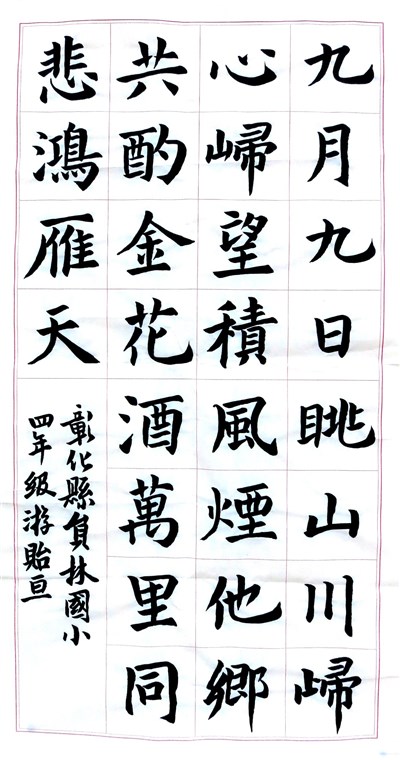 九月九日眺山川歸
心歸望積風煙他鄉
共酌金花酒萬里同
悲鴻雁天
彰化縣員林國小
四年級游貽亘